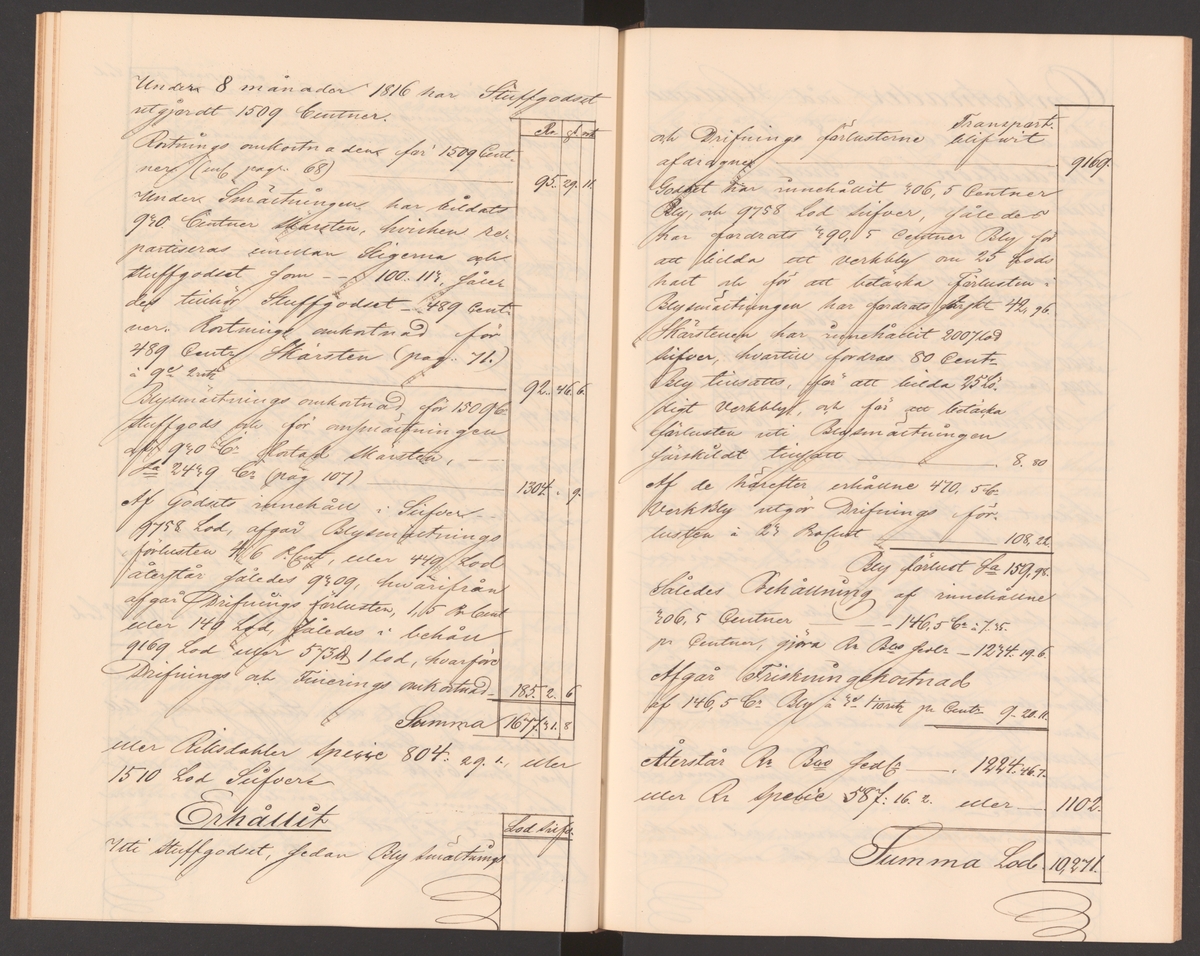 Under 8 månader 1816 har Stuffgodset
utgjordt 1509 Centner.
Rr ß rst
Rostnings omkostnaden för 1509 Cent-
ner (enl pag: 68) 95. 29. 11.
Under Smältningen har bildats
930 Centner Skärsten, hvilken re-
partiseras emellan Sligerna och
Stuffgodset som 100: 111, såle-
des tillhör Stuffgodset 489 Cent-
ner. Rostnings omkostnad för
489 Centr Skärsten (pag: 71.)
à 9 sk 2 rst 92. 46. 6.
Blysmältnings omkostnad för 1509 C
Stuffgods och för omsmältningen
af 930 Cr Rostad Skärsten,
Sa 2439 Cr (pag 107) 1304. 9.
Af Godsets innehåll i Silfver
9758 Lod, afgår Blysmältnings
förlusten 4,6 Pr Cent, eller 449 Lod
återstår således 9309, hvarifrån
afgår Drifnings förlusten, 1,5 Pr Cent
eller 140 Lod, Således i behåll
9169 Lod eller 573 1 lod, hvarföre
Drifnings och Finerings omkostnad 185. 2. 6
Summa 1677. 31. 8
eller Riksdahler specie 804. 29. 1., eller
1510 Lod Silfver
Erhållit
Lod Silfr.
Uti Stuffgodset, sedan Bly smältnings
Transport.
och Drifnings förlusterne blifwit
afdragne 9169.
Godset har innehållit 306,5 Centner
Bly, och 9758 Lod Silfver, således
har fordrats 390,5 Centner Bly för
att bilda ett verkbly om 25 Lods
halt och för att betäcka förlusten i
Blysmältningen har fordrats 42,96.
Skärstenen har innehållit 2007 Lod
Silfver, hvartill fordras 80 Cent-
Bly tillsatts, för att bilda 25 lö-
digt Verkbly, och för att betäcka
förlusten uti Blysmältningen
särskildt tillsatt 8. 80
Af de härefter erhållne 470,5 C
Verkbly utgör Drifnings för-
lusten à 23 Pro Cent 108,22
Bly förlust Sa 159,98.
Således Behållning af innehållne
306,5 Centner 146,5 Cr à 7. 35.
pr Centner, gjöra Rr Bco sedlr 1234. 19. 6.
Afgår Friskningskostnad
af 146,5 Cr Bly à 3 sk 10 rst pr Centr 9. 20. 11.
Återstår Rr Bco sedlr 1224. 46. 7.
eller Rr specie 587: 16. 2. eller 1102.
Summa Lod 10,271.